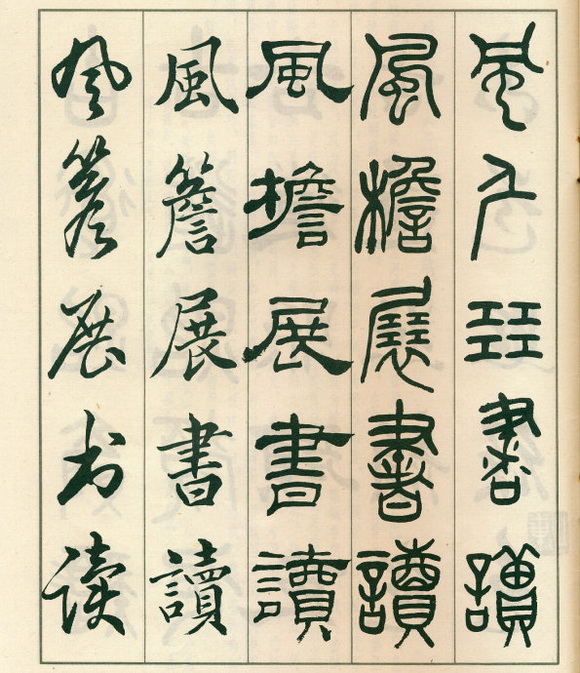 風厃㠭書讀
風檐展書讀
風檐展書讀
風簷展書讀
风簷展书读